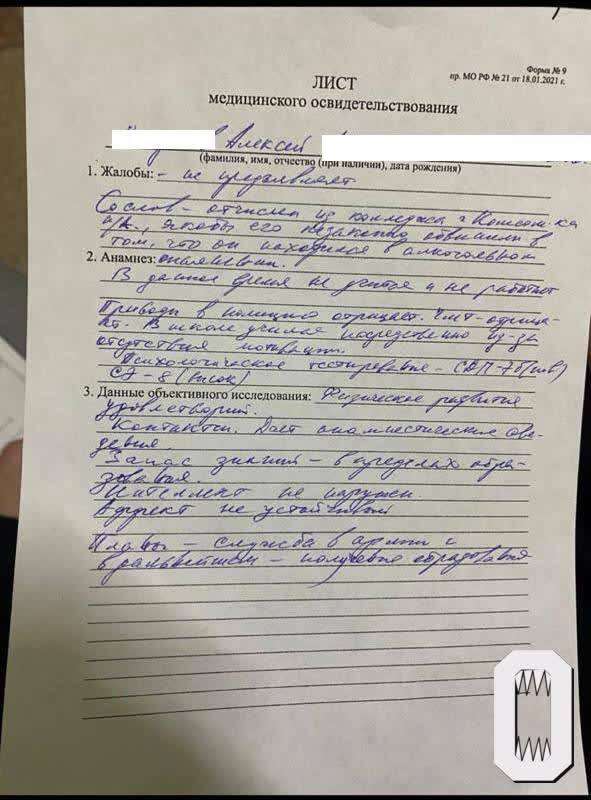 Форма № 9
пр. МО РФ № 21 от 18.01.2021 г.
ЛИСТ
медицинского освидетельствования
Алексей
(фамилия, имя, отчество (при наличии), дата рождения)
1. Жалобы: - не предъявляет
Со слов - отчислен из колледжа г.
якобы его незаконно обвинили в
том, что он находился в алкогольном
2. Анамнез: опьянении.
В данное время не учится и не работает
Приводы в полицию отрицает. ЧМТ - отрица-
ет. В школе учился посредственно из-за
отсутствия мотивации.
Психологическое тестирование -
3. Данные объективного исследования: Физическое развитие
удовлетворит.
Контактен. Дает анамнестические све-
дения.
Запас знаний - в пределах обра-
зования.
Интеллект не нарушен.
Аффект не устойчивый
Планы - служба в армии и
в дальнейшем - получение образования